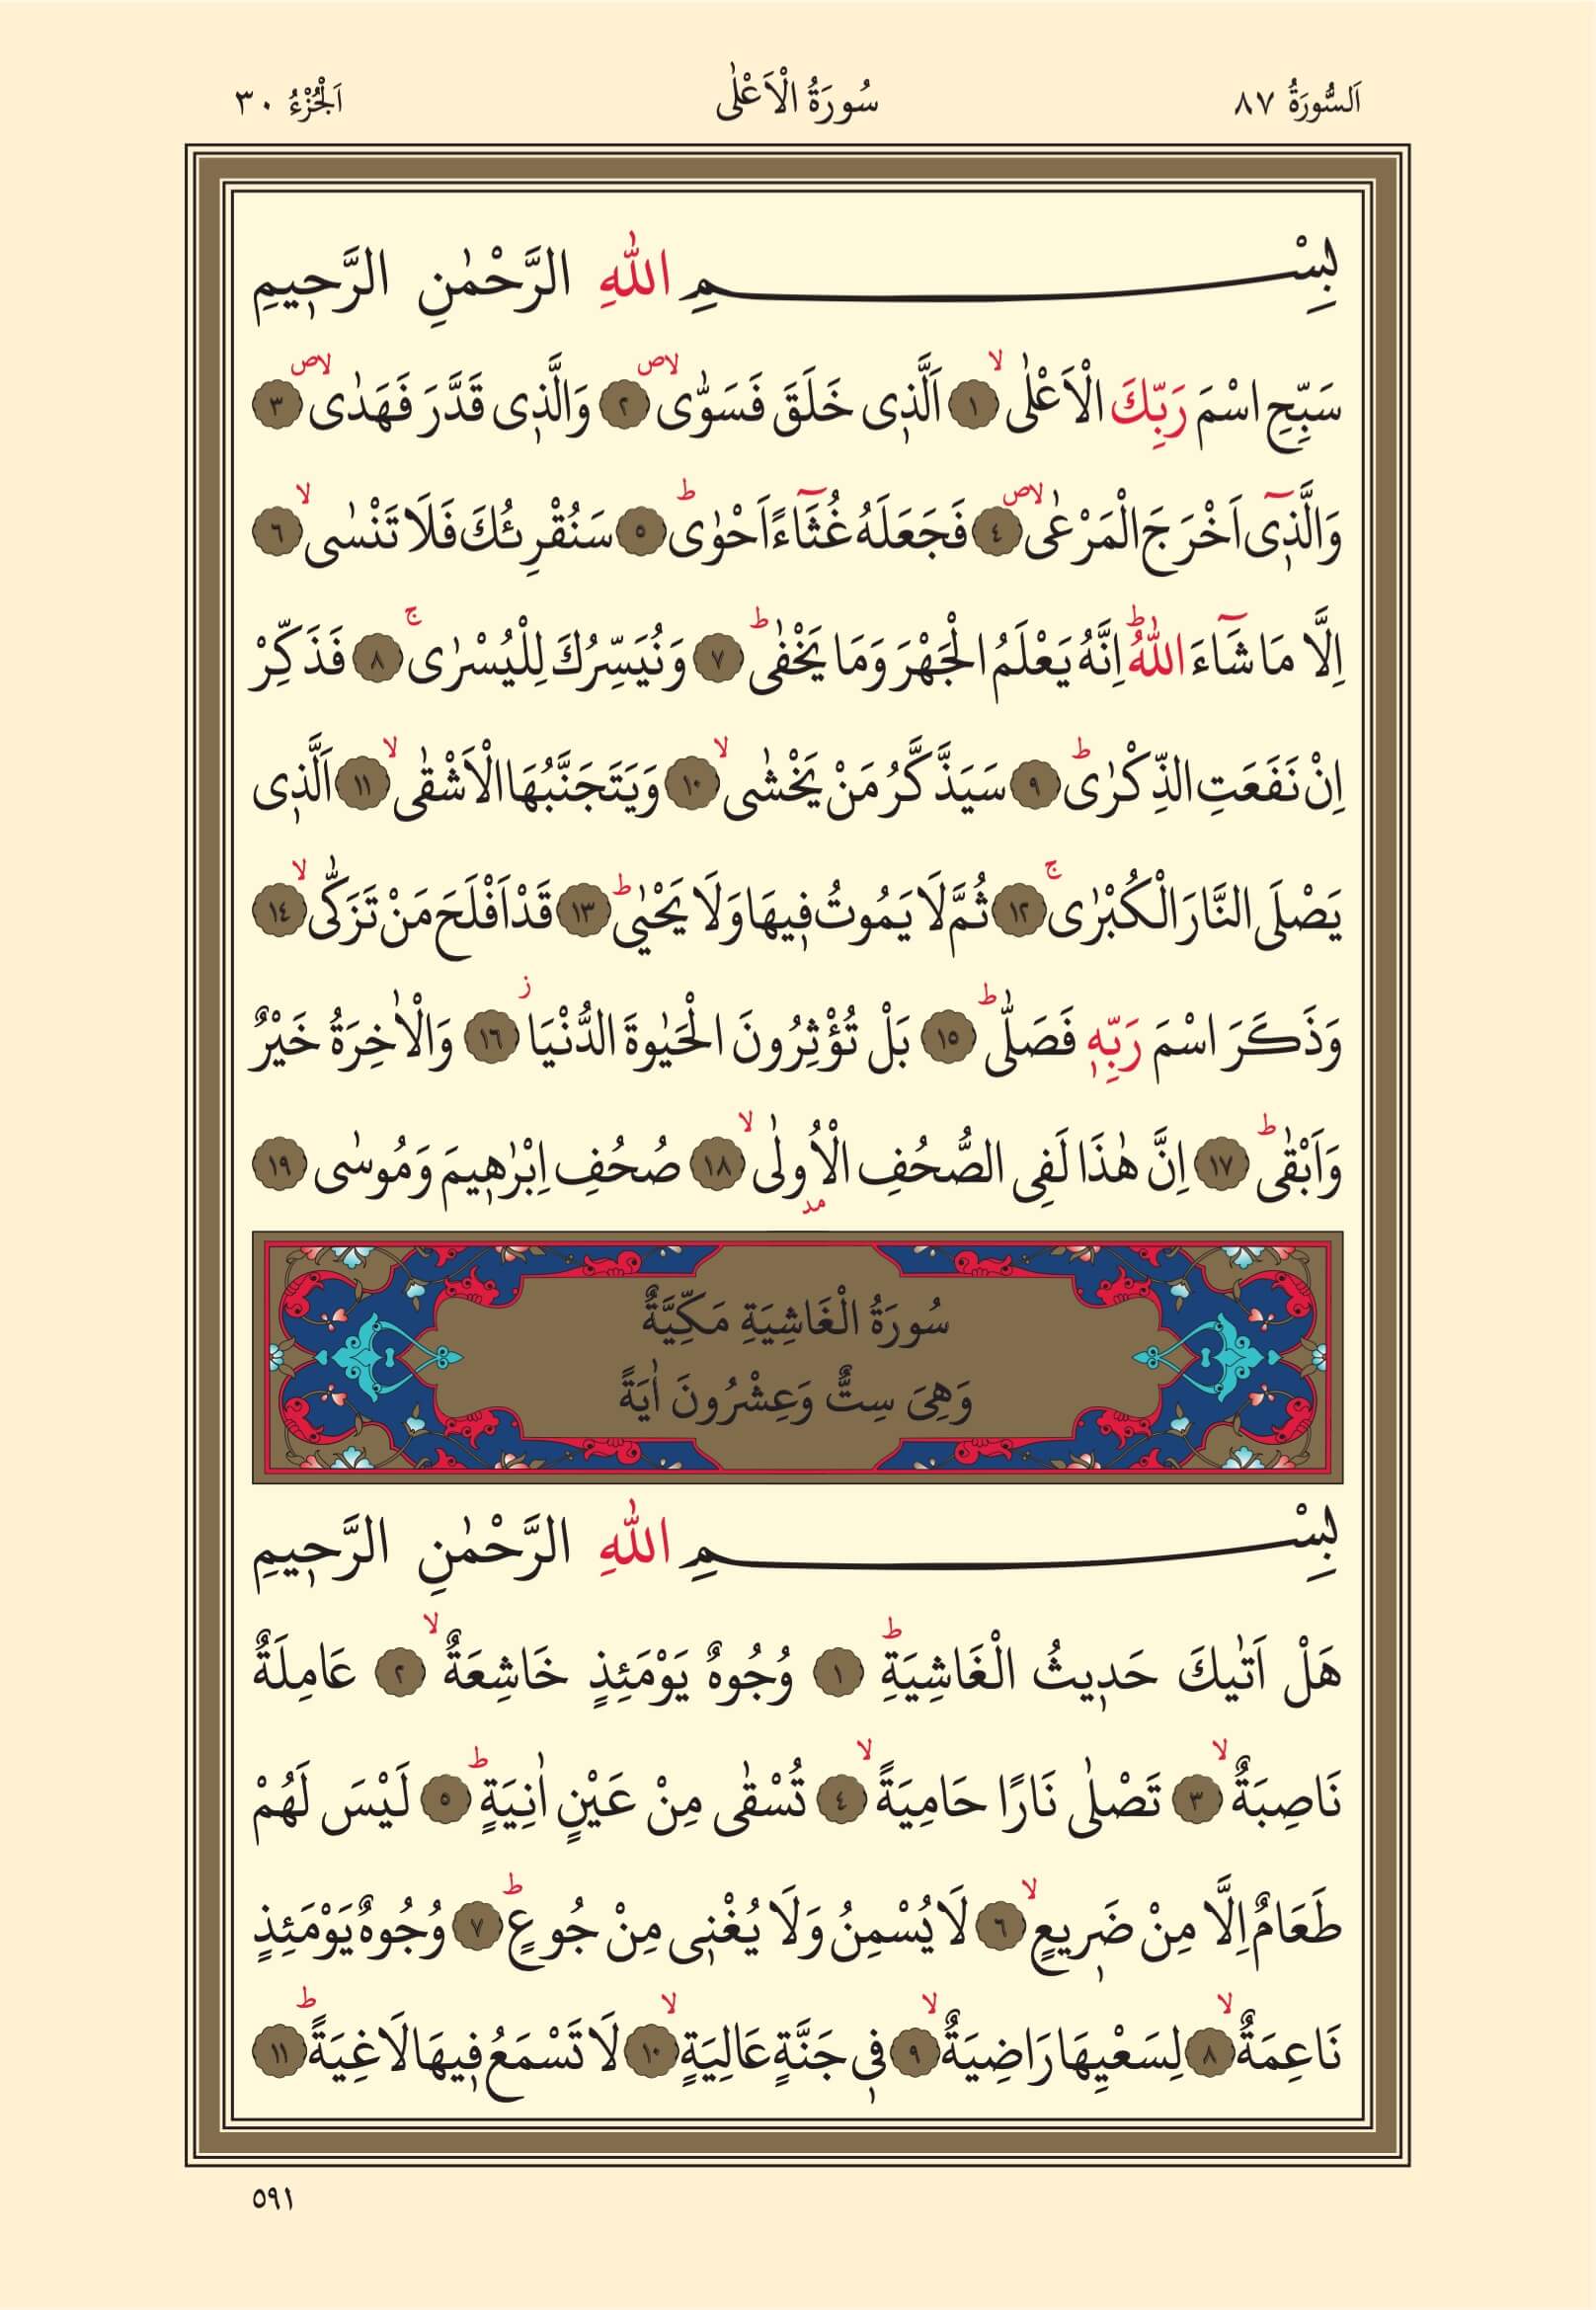 اَلسُّورَةُ ٨٧ سُورَةُ الْاَعْلٰى اَلْجُزْءُ ٣٠
بِسْمِ اللّٰهِ الرَّحْمٰنِ الرَّح۪يمِ
سَبِّحِ اسْمَ رَبِّكَ الْاَعْلٰىۙ ١ اَلَّذ۪ي خَلَقَ فَسَوّٰىۙۖ ٢ وَالَّذ۪ي قَدَّرَ فَهَدٰىۙۖ ٣
وَالَّذ۪ٓي اَخْرَجَ الْمَرْعٰىۙۖ ٤ فَجَعَلَهُ غُثَٓاءً اَحْوٰىۜ ٥ سَنُقْرِئُكَ فَلَا تَنْسٰىۙ ٦
اِلَّا مَا شَٓاءَ اللّٰهُۜ اِنَّهُ يَعْلَمُ الْجَهْرَ وَمَا يَخْفٰىۜ ٧ وَنُيَسِّرُكَ لِلْيُسْرٰىۚ ٨ فَذَكِّرْ
اِنْ نَفَعَتِ الذِّكْرٰىۜ ٩ سَيَذَّكَّرُ مَنْ يَخْشٰىۙ ١٠ وَيَتَجَنَّبُهَا الْاَشْقٰىۙ ١١ اَلَّذ۪ي
يَصْلَى النَّارَ الْكُبْرٰىۚ ١٢ ثُمَّ لَا يَمُوتُ ف۪يهَا وَلَا يَحْيٰىۜ ١٣ قَدْ اَفْلَحَ مَنْ تَزَكّٰىۙ ١٤
وَذَكَرَ اسْمَ رَبِّه۪ فَصَلّٰىۜ ١٥ بَلْ تُؤْثِرُونَ الْحَيٰوةَ الدُّنْيَاۘ ١٦ وَالْاٰخِرَةُ خَيْرٌ
وَاَبْقٰىۜ ١٧ اِنَّ هٰذَا لَفِي الصُّحُفِ الْاُولٰىۙ ١٨ صُحُفِ اِبْرٰه۪يمَ وَمُوسٰى ١٩
سُورَةُ الْغَاشِيَةِ مَكِّيَّةٌ
وَهِيَ سِتٌّ وَعِشْرُونَ اٰيَةً
بِسْمِ اللّٰهِ الرَّحْمٰنِ الرَّح۪يمِ
هَلْ اَتٰيكَ حَد۪يثُ الْغَاشِيَةِۜ ١ وُجُوهٌ يَوْمَئِذٍ خَاشِعَةٌۙ ٢ عَامِلَةٌ
نَاصِبَةٌۙ ٣ تَصْلٰى نَارًا حَامِيَةًۙ ٤ تُسْقٰى مِنْ عَيْنٍ اٰنِيَةٍۜ ٥ لَيْسَ لَهُمْ
طَعَامٌ اِلَّا مِنْ ضَر۪يعٍۙ ٦ لَا يُسْمِنُ وَلَا يُغْن۪ي مِنْ جُوعٍۜ ٧ وُجُوهٌ يَوْمَئِذٍ
نَاعِمَةٌۙ ٨ لِسَعْيِهَا رَاضِيَةٌۙ ٩ ف۪ي جَنَّةٍ عَالِيَةٍۙ ١٠ لَا تَسْمَعُ ف۪يهَا لَاغِيَةًۜ ١١
٥٩١